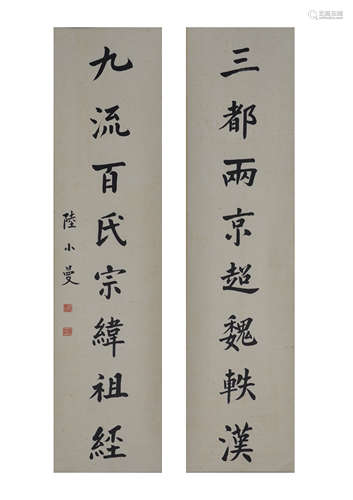 三都兩京超魏軼漢
九流百氏宗緯祖經
陸小曼